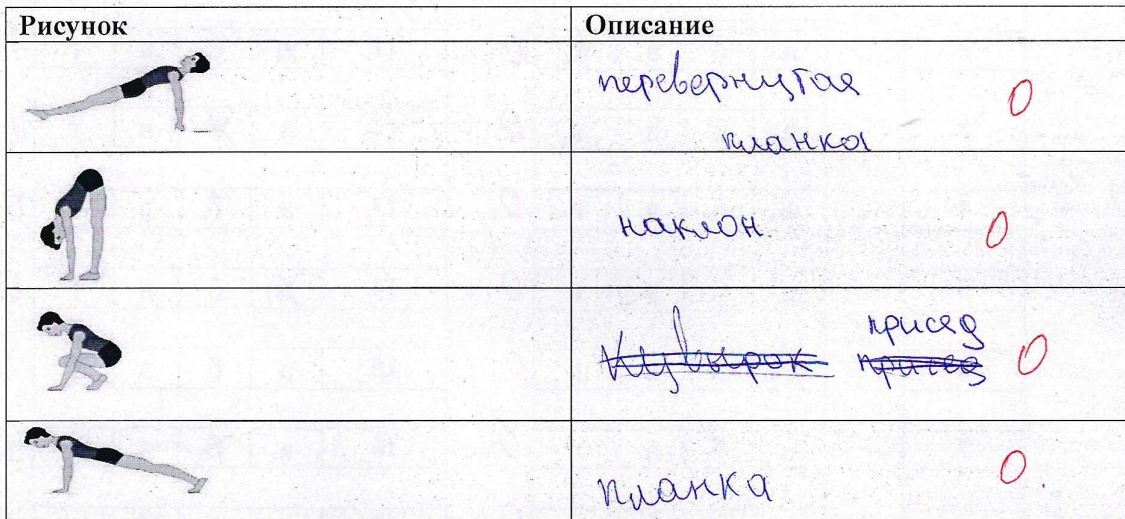 Рисунок
Описание
перевернутая
планка
0
наклон
0
присед
кувырок присед 0
планка
0.